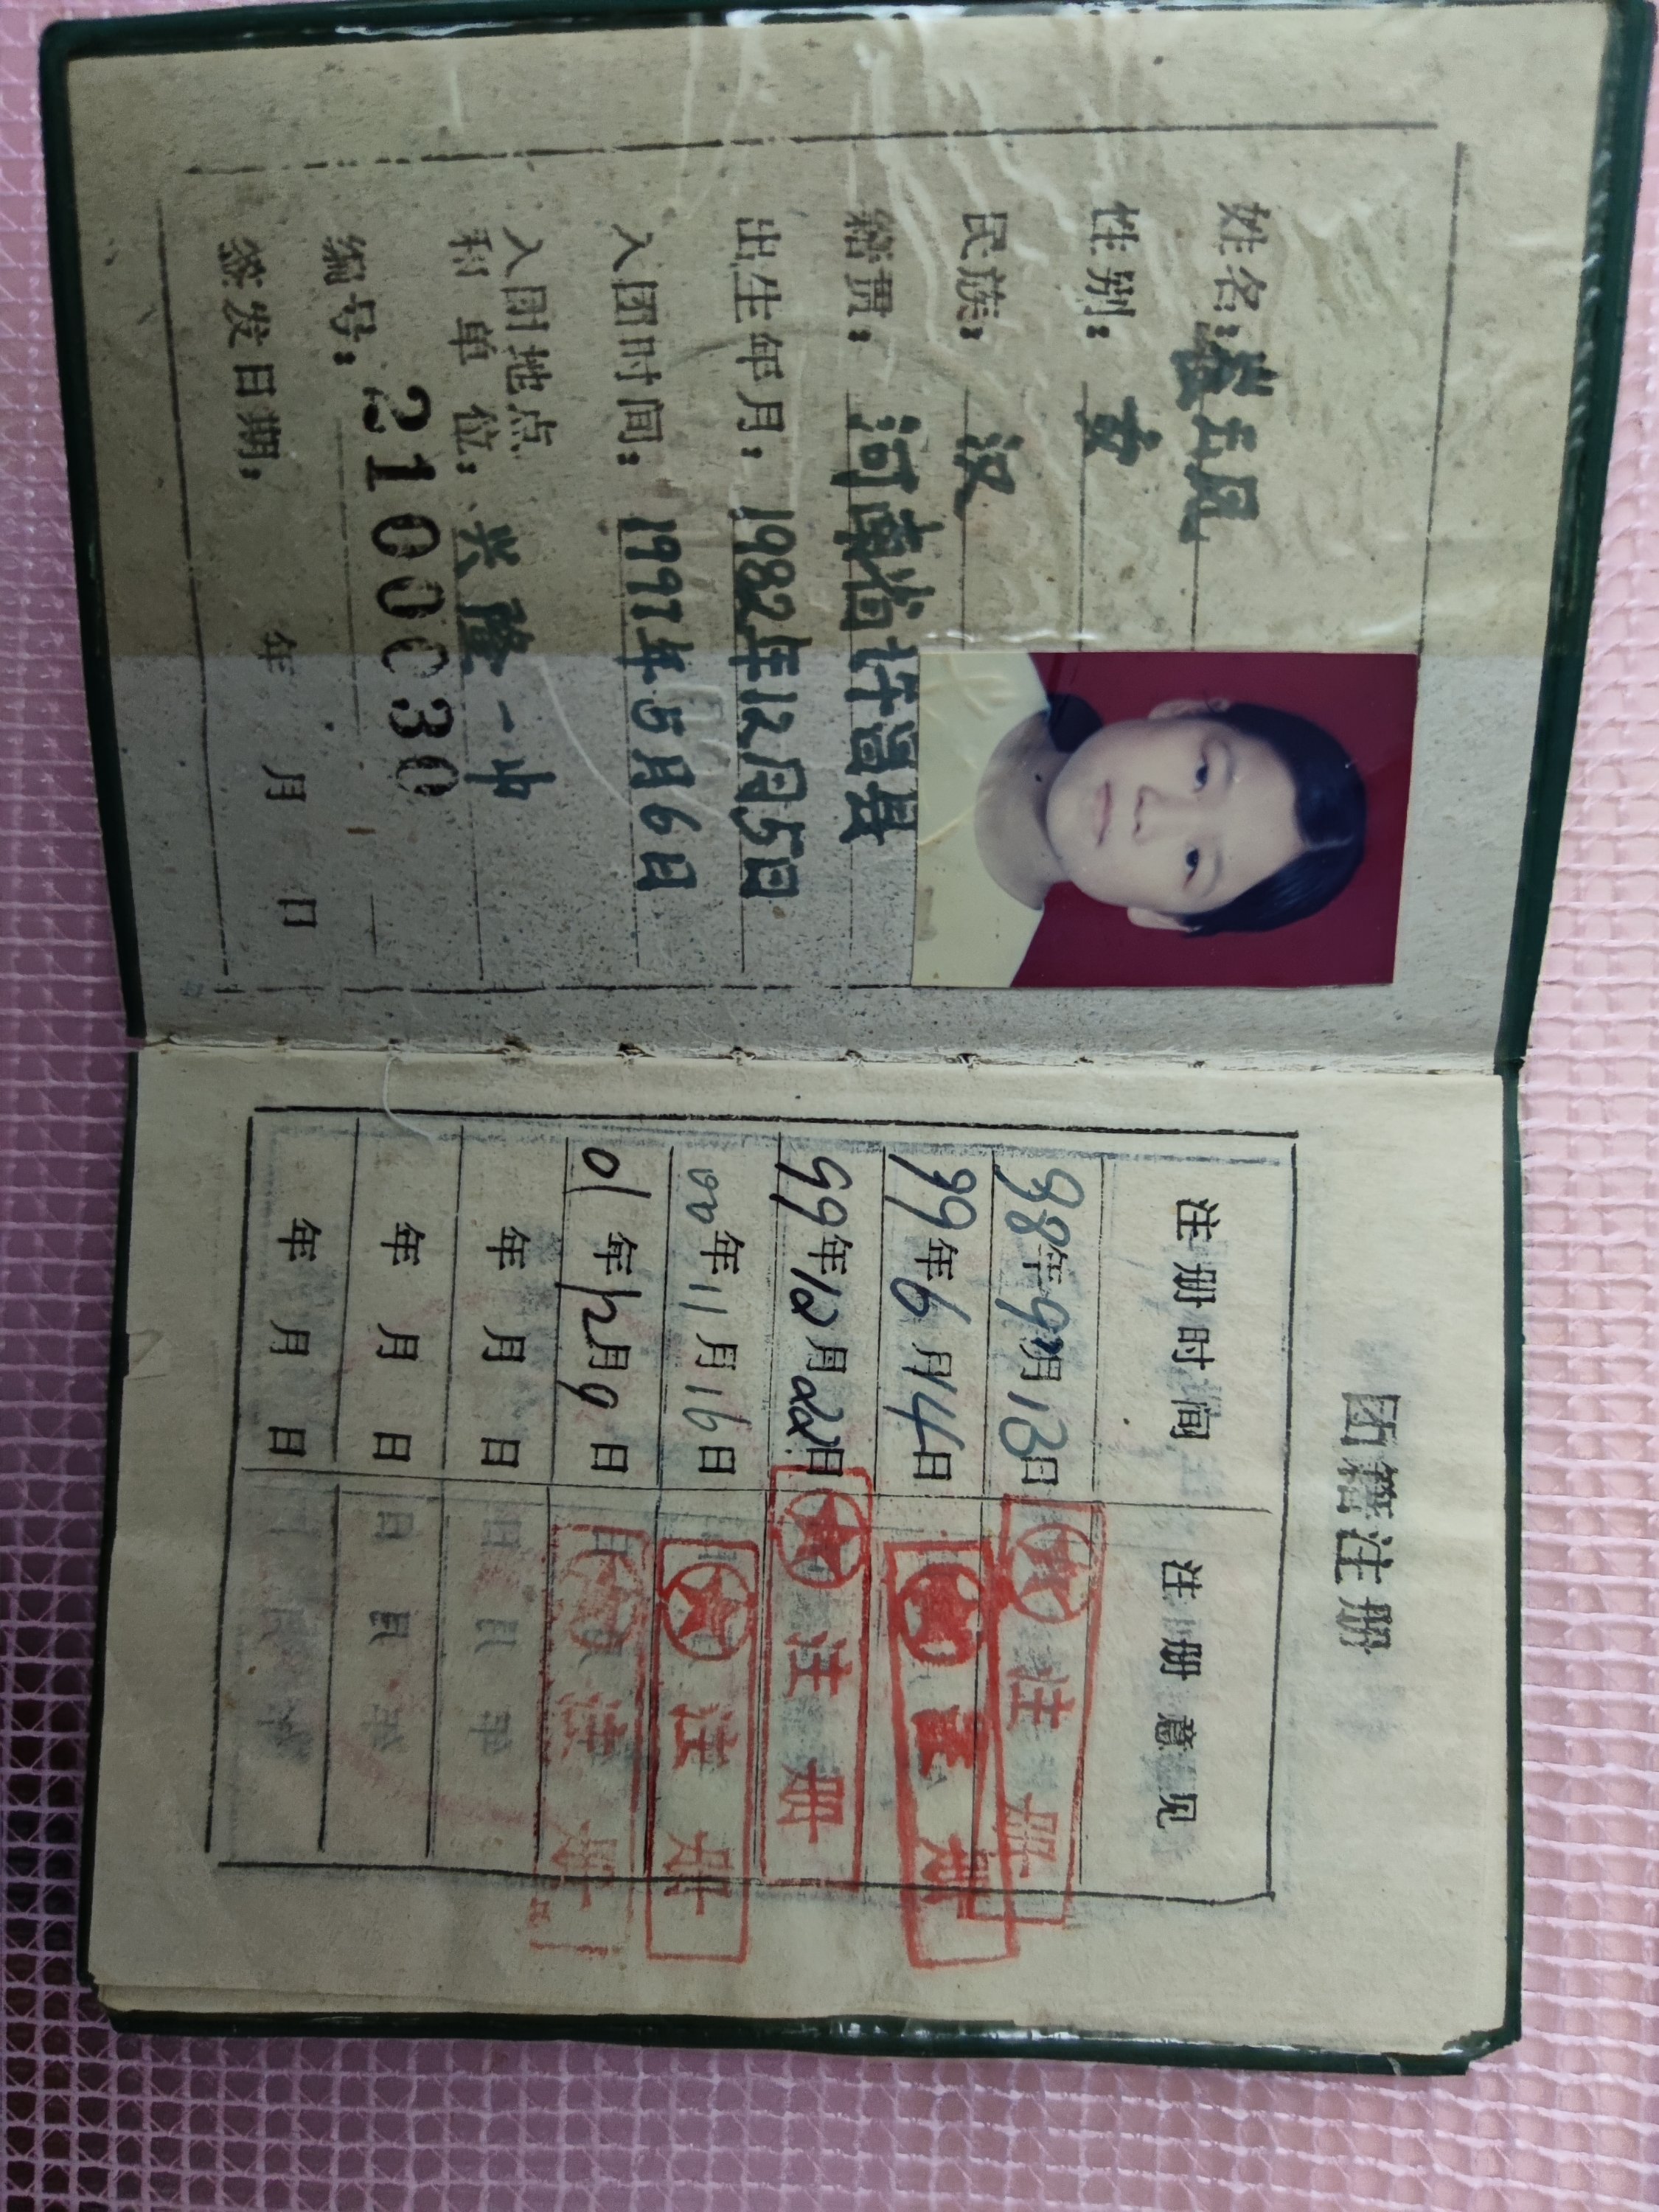 姓名：五凤
性别：女
民族：汉
籍贯：河南省许昌县
出生年月：1982年12月5日
入团时间：1997年5月6日
入团地点
和单位：兴隆一中
编号：2100030
签发日期： 年 月 日
团籍注册
注册时间 注册意见
98年9月13日 注册
99年6月14日 注册
99年12月22日 注册
00年11月16日 注册
01年12月9日 注册
年 月 日
年 月 日
年 月 日